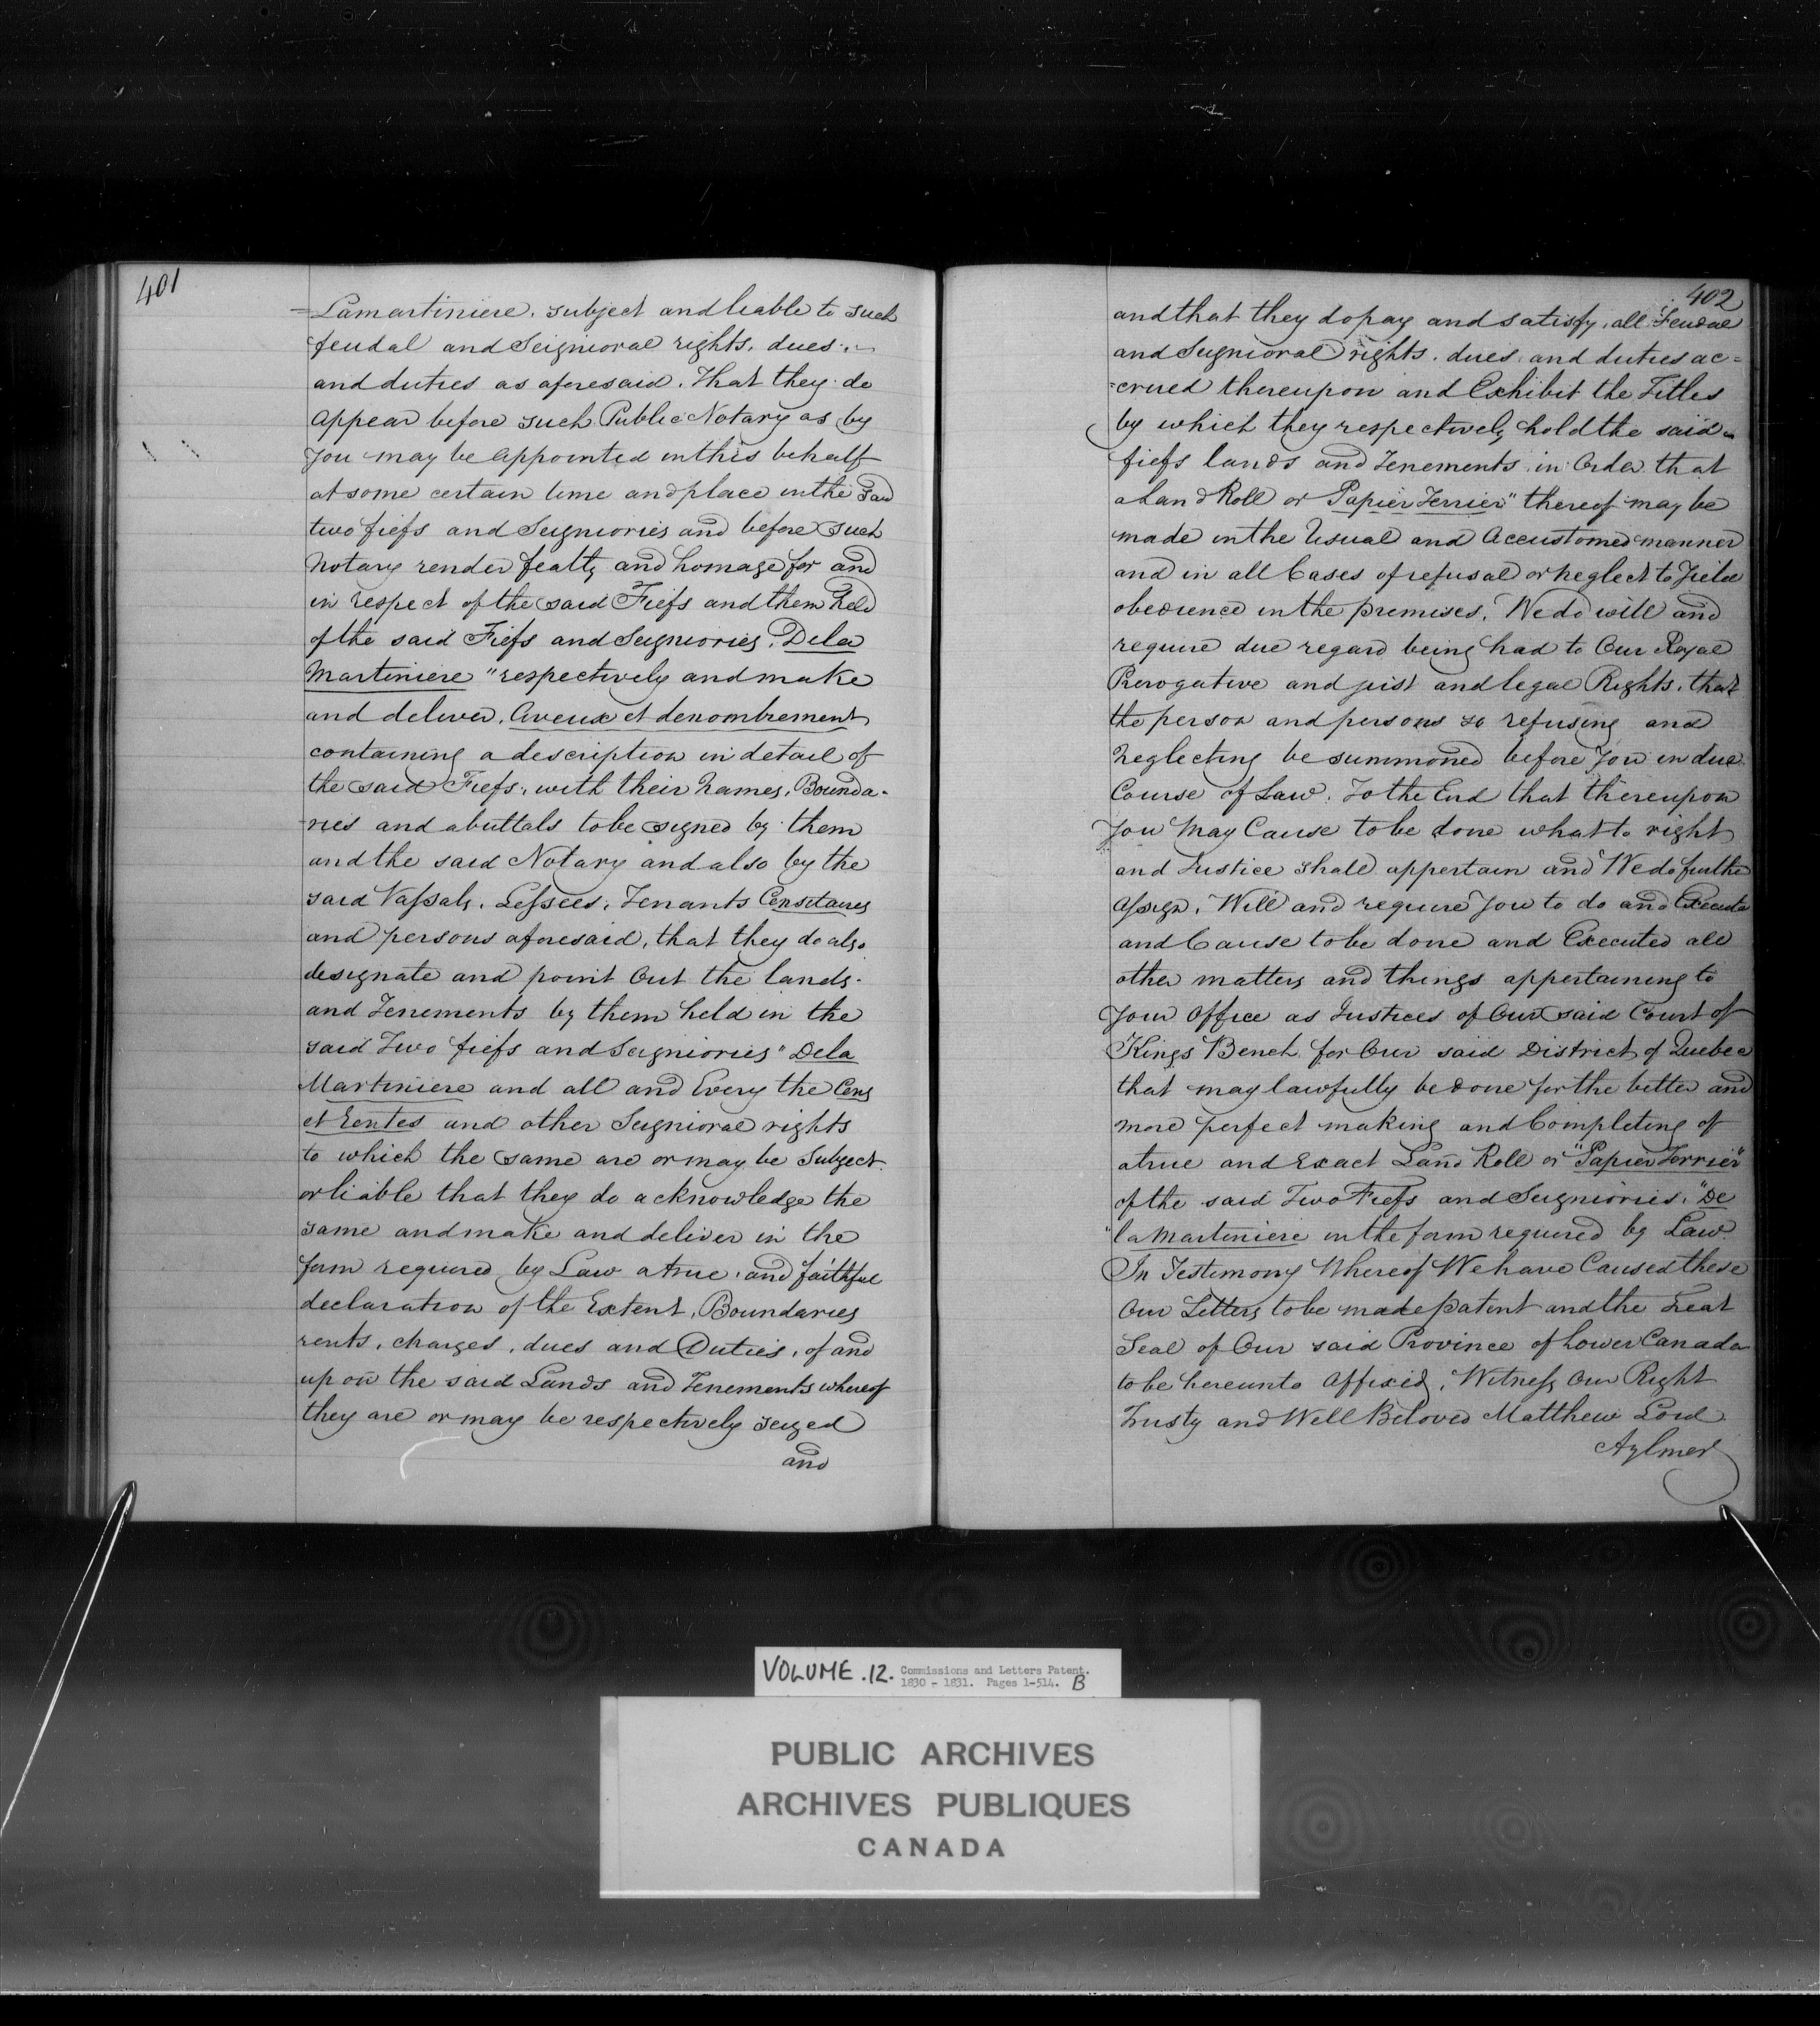 401
=Lamartiniere, subject and liable to such
feudal and Seignioral rights, dues,
and duties as aforesaid. That they do
appear before such Public Notary as by
you may be appointed in this behalf
at some certain time and place in the said
two fiefs and Seigniories and before such
Notary render fealty and homage for and
in respect of the said Fiefs and them held
of the said Fiefs and Seigniories, Dela
Martiniere" respectively and make
and deliver, Aveux et denombrement
containing a description in detail of
the said Fiefs, with their Names, Bounda-
ries and abuttals to be signed by them
and the said Notary and also by the
said Vassals, Lessees, Tenants Censitaires
and persons aforesaid, that they do also
designate and point Out the lands
and Tenements by them held in the
said Two fiefs and Seigniories "Dela
Martiniere and all and Every the Cens
et Rentes and other Seignioral rights
to which the same are or may be Subject
or liable that they do acknowledge the
same and make and deliver in the
form required by Law a true and faithful
declaration of the Extent, Boundaries
rents, charges, dues and Duties, of and
upon the said Lands and Tenements whereof
they are or may be respectively seized
and
402
and that they do pay and satisfy, all Feudal
and Seignioral rights, dues and duties ac=
=crued thereupon and Exhibit the Titles
by which they respectively hold the said
fiefs lands and Tenements in Order that
a Land Roll or Papier Terrier" thereof may be
made in the Usual and Accustomed manner
and in all Cases of refusal or neglect to Yield
obedience in the premises, We do will and
require due regard being had to Our Royal
Prerogative and just and legal Rights, that
the person and persons so refusing and
Neglecting be summoned before You in due
Course of Law. To the End that thereupon
You May Cause to be done what to right
and Justice shall appertain and We do further
Assign, Will and require You to do and Execute
and Cause to be done and Executed all
other matters and things appertaining to
Your Office as Justices of Our said Court of
Kings Bench for Our said District of Quebec
that may lawfully be done for the better and
more perfect making and Completing of
a true and Exact Land Roll or "Papier Terrier"
of the said Two Fiefs and Seigniories, "De
"la Martiniere in the form required by Law
In Testimony Whereof We have Caused these
Our Letters to be made patent and the Great
Seal of Our said Province of Lower Canada
to be hereunto Affixed, Witness Our Right
Trusty and Well Beloved Matthew Lord
Aylmer
VOLUME .12. Commissions and Letters Patent.
1830 - 1831. Pages 1-514. B
PUBLIC ARCHIVES
ARCHIVES PUBLIQUES
CANADA